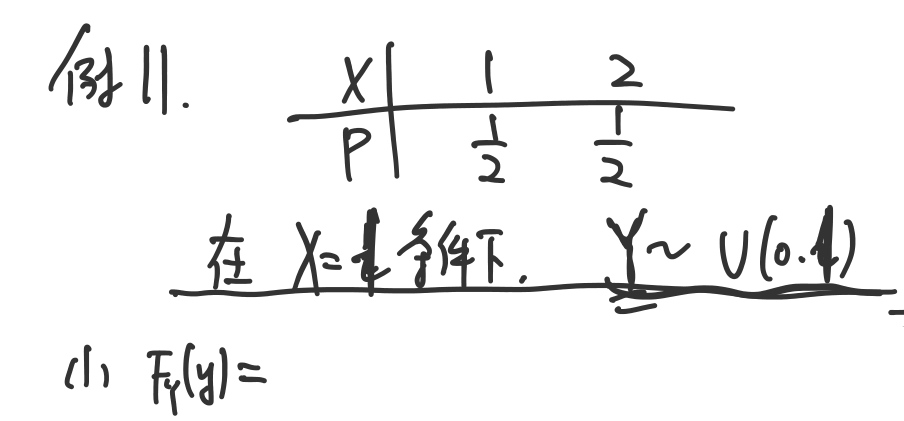 例11.
X | 1 2
P | 1/2 1/2
在 X= 条件下. Y~U(0. )
(1) F_Y(y)=